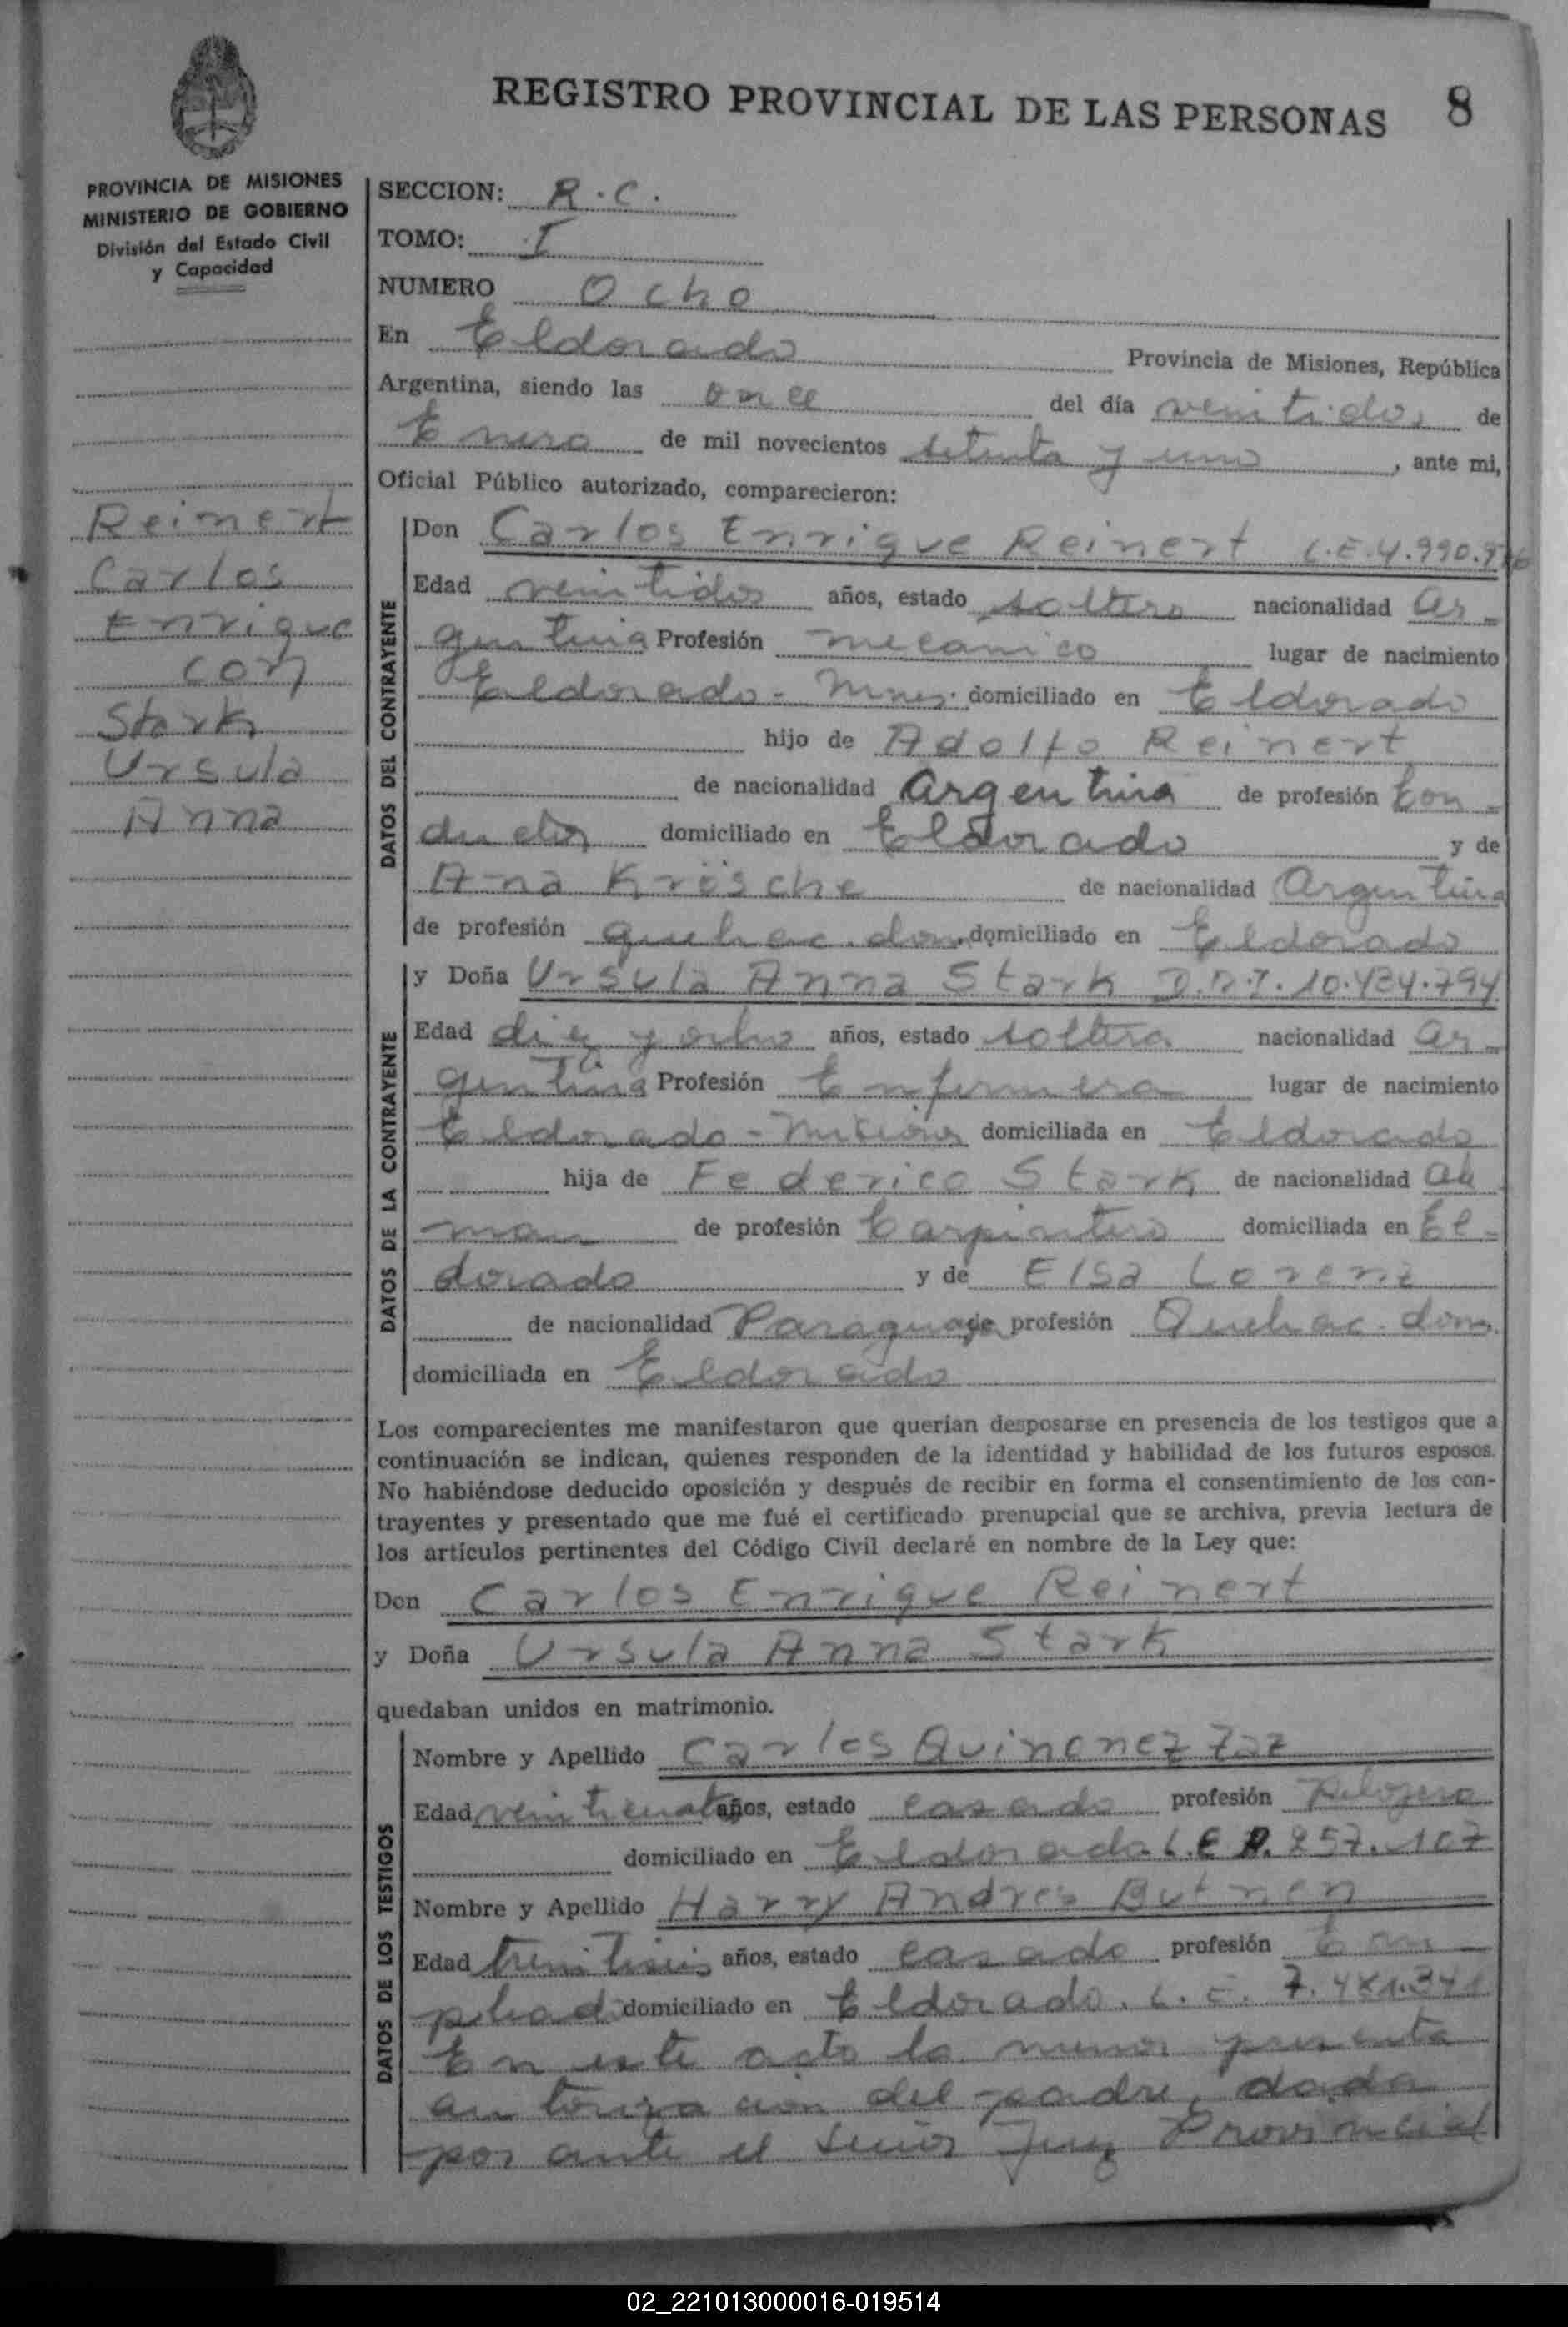 REGISTRO PROVINCIAL DE LAS PERSONAS 8
PROVINCIA DE MISIONES
MINISTERIO DE GOBIERNO
División del Estado Civil
y Capacidad
Reinert
Carlos
Enrique
con
Stark
Ursula
Anna
SECCION: R.C.
TOMO: I
NUMERO Ocho
En Eldorado Provincia de Misiones, República
Argentina, siendo las once del día veintidos de
Enero de mil novecientos setenta y uno, ante mi,
Oficial Público autorizado, comparecieron:
DATOS DEL CONTRAYENTE
Don Carlos Enrique Reinert L.E. 4.990.
Edad veintidos años, estado soltero nacionalidad ar-
gentina Profesión mecánico lugar de nacimiento
Eldorado - Mnes. domiciliado en Eldorado
hijo de Adolfo Reinert
de nacionalidad Argentina de profesión Con-
ductor domiciliado en Eldorado y de
Ana Krösche de nacionalidad Argentina
de profesión quehac. dom. domiciliado en Eldorado
DATOS DE LA CONTRAYENTE
y Doña Ursula Anna Stark D.N.I. 10.434.794
Edad diez y ocho años, estado soltera nacionalidad ar-
gentina Profesión Enfermera lugar de nacimiento
Eldorado - Misiones domiciliada en Eldorado
hija de Federico Stark de nacionalidad ale
man de profesión Carpintero domiciliada en El-
dorado y de Elsa Lorenz
de nacionalidad Paraguaya de profesión Quehac. dom.
domiciliada en Eldorado
Los comparecientes me manifestaron que querían desposarse en presencia de los testigos que a
continuación se indican, quienes responden de la identidad y habilidad de los futuros esposos.
No habiéndose deducido oposición y después de recibir en forma el consentimiento de los con-
trayentes y presentado que me fué el certificado prenupcial que se archiva, previa lectura de
los artículos pertinentes del Código Civil declaré en nombre de la Ley que:
Don Carlos Enrique Reinert
y Doña Ursula Anna Stark
quedaban unidos en matrimonio.
DATOS DE LOS TESTIGOS
Nombre y Apellido Carlos Quinonez
Edad veinticuatro años, estado casado profesión Relojero
domiciliado en Eldorado L.E. 8.257.107
Nombre y Apellido Harry Andres
Edad treintiseis años, estado casado profesión Em-
pleado domiciliado en Eldorado. L.E. 7.481.341
En este acto la menor presenta
autorización del padre, dada
por ante el señor Juez Provincial
02_221013000016-019514